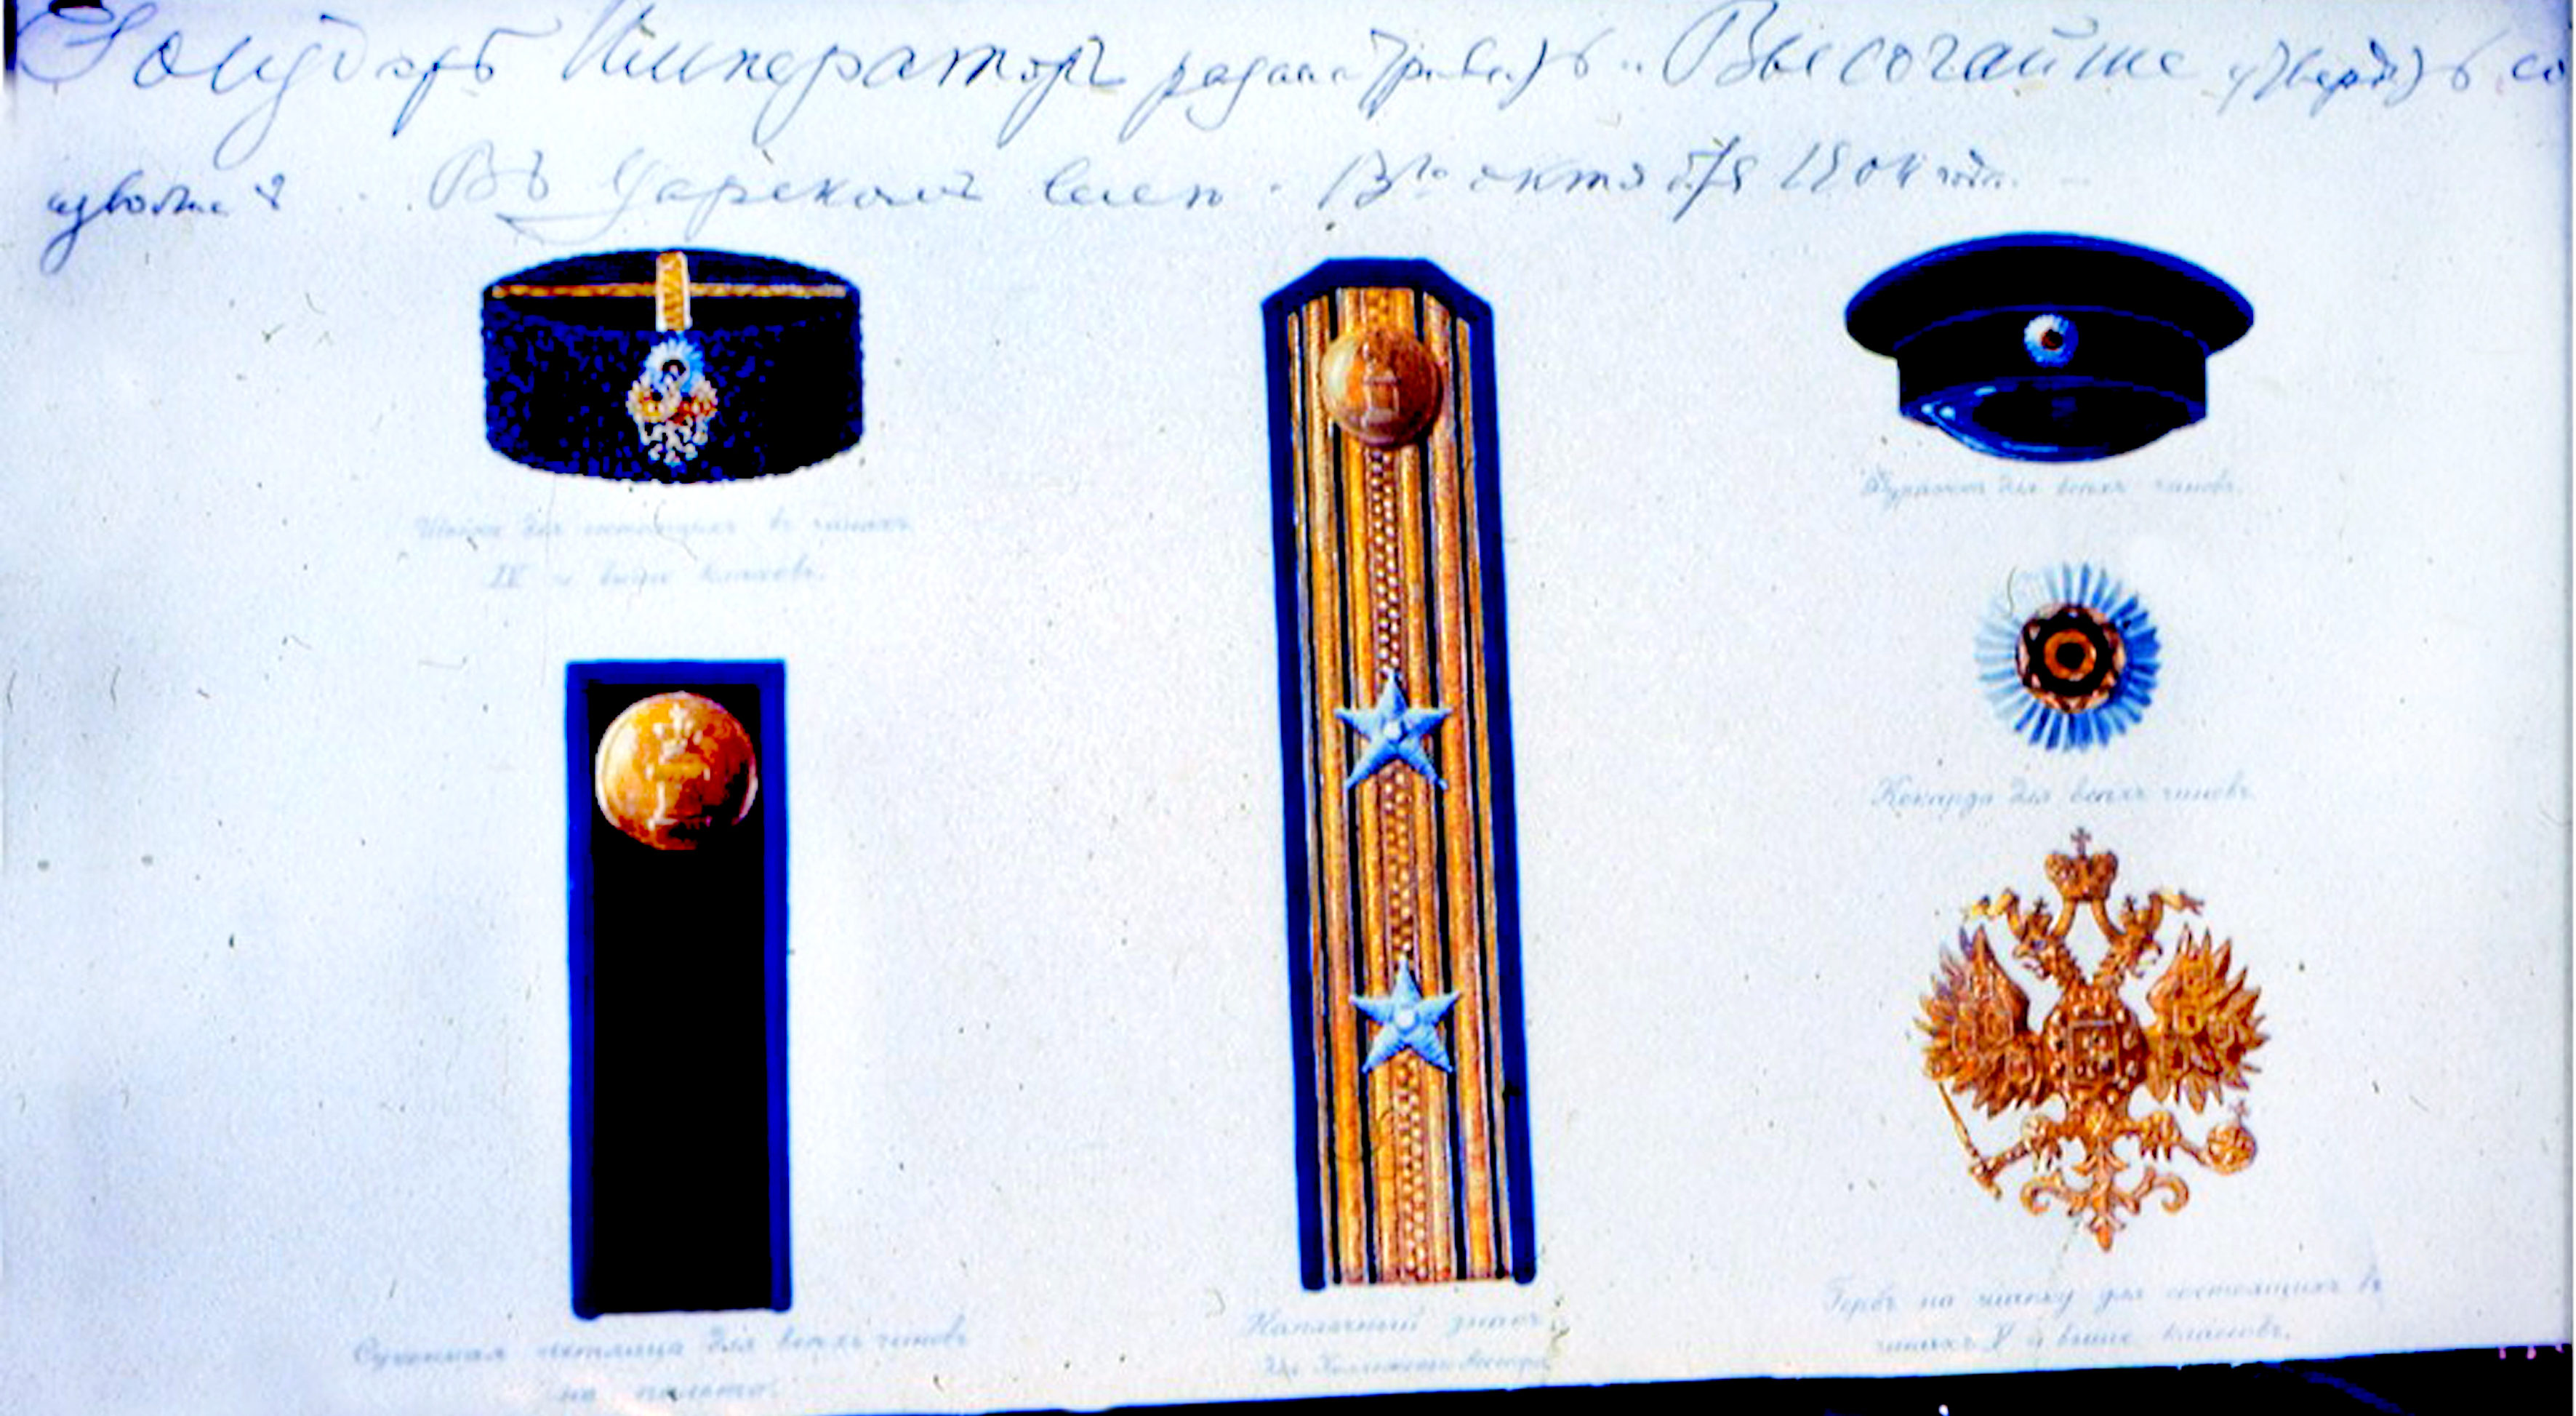 Государь Императоръ разсматривалъ и Высочайше утвердилъ со
изволилъ. Въ Царскомъ Селѣ. 13го октября 1904 года.
Шапка для состоящихъ въ чинахъ
IV и выше классовъ.
Фуражка для всѣхъ чиновъ.
Кокарда для всѣхъ чиновъ.
Суконная петлица для всѣхъ чиновъ
на пальто.
Наплечный знакъ
для Коллежскаго Ассесора
Гербъ на шапку для состоящихъ въ
чинахъ V и выше классовъ.